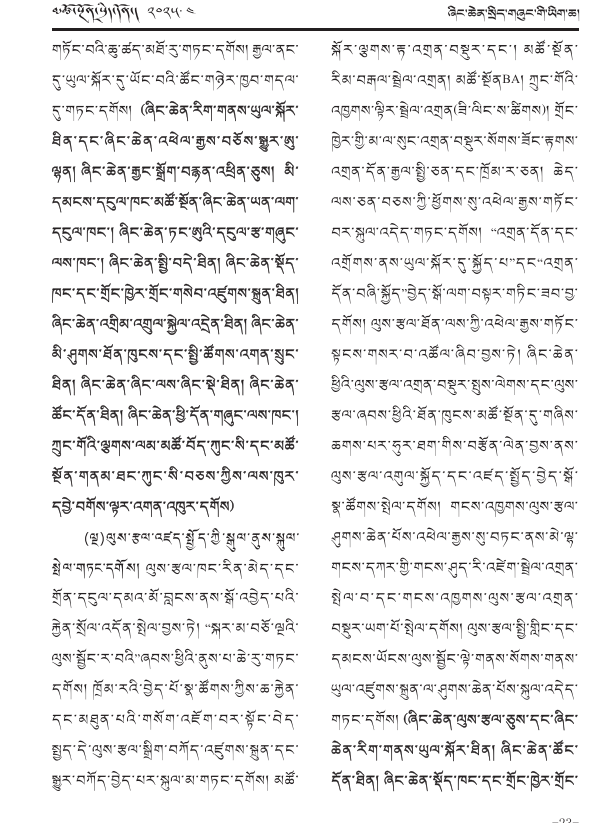 མཚོ་སྔོན་སྲིད་གཞུང་། ༢༠༢༥.༤
ཞིང་ཆེན་སྲིད་གཞུང་གི་ཡིག་ཆ།
གཏོང་བའི་ཆུ་ཚད་མཐོ་རུ་གཏང་དགོས། རྒྱལ་ནང་
དུ་ཡུལ་སྐོར་དུ་ཡོང་བའི་ཚོང་གཉེར་ཁྱབ་གདལ་
དུ་གཏང་དགོས། (ཞིང་ཆེན་རིག་གནས་ཡུལ་སྐོར་
ཐིན་དང་ཞིང་ཆེན་འཕེལ་རྒྱས་བཅོས་སྒྱུར་ཨུ་
ལྷན། ཞིང་ཆེན་རྒྱང་སྒྲོག་བརྙན་འཕྲིན་ཅུས། མི་
དམངས་དངུལ་ཁང་མཚོ་སྔོན་ཞིང་ཆེན་ཡན་ལག་
དངུལ་ཁང་། ཞིང་ཆེན་ཏང་ཨུའི་དངུལ་རྩ་གཞུང་
ལས་ཁང་། ཞིང་ཆེན་སྤྱི་བདེ་ཐིན། ཞིང་ཆེན་སྡོད་
ཁང་དང་གྲོང་ཁྱེར་གྲོང་གསེབ་འཛུགས་སྐྲུན་ཐིན།
ཞིང་ཆེན་འགྲིམ་འགྲུལ་སྐྱེལ་འདྲེན་ཐིན། ཞིང་ཆེན་
མི་ཤུགས་ཐོན་ཁུངས་དང་སྤྱི་ཚོགས་འགན་སྲུང་
ཐིན། ཞིང་ཆེན་ཞིང་ལས་ཞིང་སྡེ་ཐིན། ཞིང་ཆེན་
ཚོང་དོན་ཐིན། ཞིང་ཆེན་ཕྱི་དོན་གཞུང་ལས་ཁང་།
ཀྲུང་གོའི་ལྕགས་ལམ་མཚོ་བོད་ཀུང་སི་དང་མཚོ་
སྔོན་གནམ་ཐང་ཀུང་སི་བཅས་ཀྱིས་ལས་ཁུར་
དབྱེ་བགོས་ལྟར་འགན་འཁུར་དགོས)
(ལྔ)ལུས་རྩལ་འཛད་སྤྱོད་ཀྱི་སྒུལ་ནུས་སྐུལ་
སྤེལ་གཏང་དགོས། ལུས་རྩལ་ཁང་རིན་མེད་དང་
གྲོན་དངུལ་དམའ་མོ་བླངས་ནས་སྒོ་འབྱེད་པའི་
རྐྱེན་སྲོལ་འདོན་སྤེལ་བྱས་ཏེ། “སྐར་མ་བཅོ་ལྔའི་
ལུས་སྦྱོང་ར་བའི”ཞབས་ཕྱིའི་ནུས་པ་ཆེ་རུ་གཏང་
དགོས། ཁྲོམ་རའི་བྱེད་པོ་སྣ་ཚོགས་ཀྱིས་ཆ་རྐྱེན་
དང་མཐུན་པའི་གསོག་འཇོག་བར་སྟོང་བེད་
སྤྱད་དེ་ལུས་རྩལ་སྒྲིག་བཀོད་འཛུགས་སྐྲུན་དང་
སྒྱུར་བཀོད་བྱེད་པར་སྐུལ་མ་གཏང་དགོས། མཚོ་
སྐོར་ལྕགས་རྟ་འགྲན་བསྡུར་དང་། མཚོ་སྔོན་
རིམ་བརྒལ་སྦྲེལ་འགྲན། མཚོ་སྔོནBA། ཀྲུང་གོའི་
འཁྱགས་ལྟེར་སྦྲེལ་འགྲན(ཟི་ལིང་ས་ཚིགས)། གྲོང་
ཁྱེར་གྱི་མ་ལ་སུང་འགྲན་བསྡུར་སོགས་ཟོང་རྟགས་
འགྲན་དོན་རྒྱལ་སྤྱི་ཅན་དང་ཁྲོམ་ར་ཅན། ཆེད་
ལས་ཅན་བཅས་ཀྱི་ཕྱོགས་སུ་འཕེལ་རྒྱས་གཏོང་
བར་སྐུལ་འདེད་གཏང་དགོས། “འགྲན་དོན་དང་
འགྲོགས་ནས་ཡུལ་སྐོར་དུ་སྐྱོད་པ”དང“འགྲན་
དོན་བཞི་སྐྱོད”བྱེད་སྒོ་ལག་བསྟར་གཏིང་ཟབ་བྱ་
དགོས། ལུས་རྩལ་ཐོན་ལས་ཀྱི་འཕེལ་རྒྱས་གཏོང་
སྟངས་གསར་བ་འཚོལ་ཞིབ་བྱས་ཏེ། ཞིང་ཆེན་
ཕྱིའི་ལུས་རྩལ་འགྲན་བསྡུར་སྤུས་ལེགས་དང་ལུས་
རྩལ་ཞབས་ཕྱིའི་ཐོན་ཁུངས་མཚོ་སྔོན་དུ་གཞིས་
ཆགས་པར་ཧུར་ཐག་གིས་བརྩོན་ལེན་བྱས་ནས་
ལུས་རྩལ་འགུལ་སྐྱོད་དང་འཛད་སྤྱོད་བྱེད་སྒོ་
སྣ་ཚོགས་སྤེལ་དགོས། གངས་འཁྱགས་ལུས་རྩལ་
ཤུགས་ཆེན་པོས་འཕེལ་རྒྱས་སུ་བཏང་ནས་མེ་ལྷ་
གངས་དཀར་གྱི་གངས་ཤུད་རི་འཛེག་སྦྲེལ་འགྲན་
སྤེལ་བ་དང་གངས་འཁྱགས་ལུས་རྩལ་འགྲན་
བསྡུར་ཡག་པོ་སྤེལ་དགོས། ལུས་རྩལ་སྤྱི་གླིང་དང་
དམངས་ཡོངས་ལུས་སྦྱོང་ལྟེ་གནས་སོགས་གནས་
ཡུལ་འཛུགས་སྐྲུན་ལ་ཤུགས་ཆེན་པོས་སྐུལ་འདེད་
གཏང་དགོས། (ཞིང་ཆེན་ལུས་རྩལ་ཅུས་དང་ཞིང་
ཆེན་རིག་གནས་ཡུལ་སྐོར་ཐིན། ཞིང་ཆེན་ཚོང་
དོན་ཐིན། ཞིང་ཆེན་སྡོད་ཁང་དང་གྲོང་ཁྱེར་གྲོང་